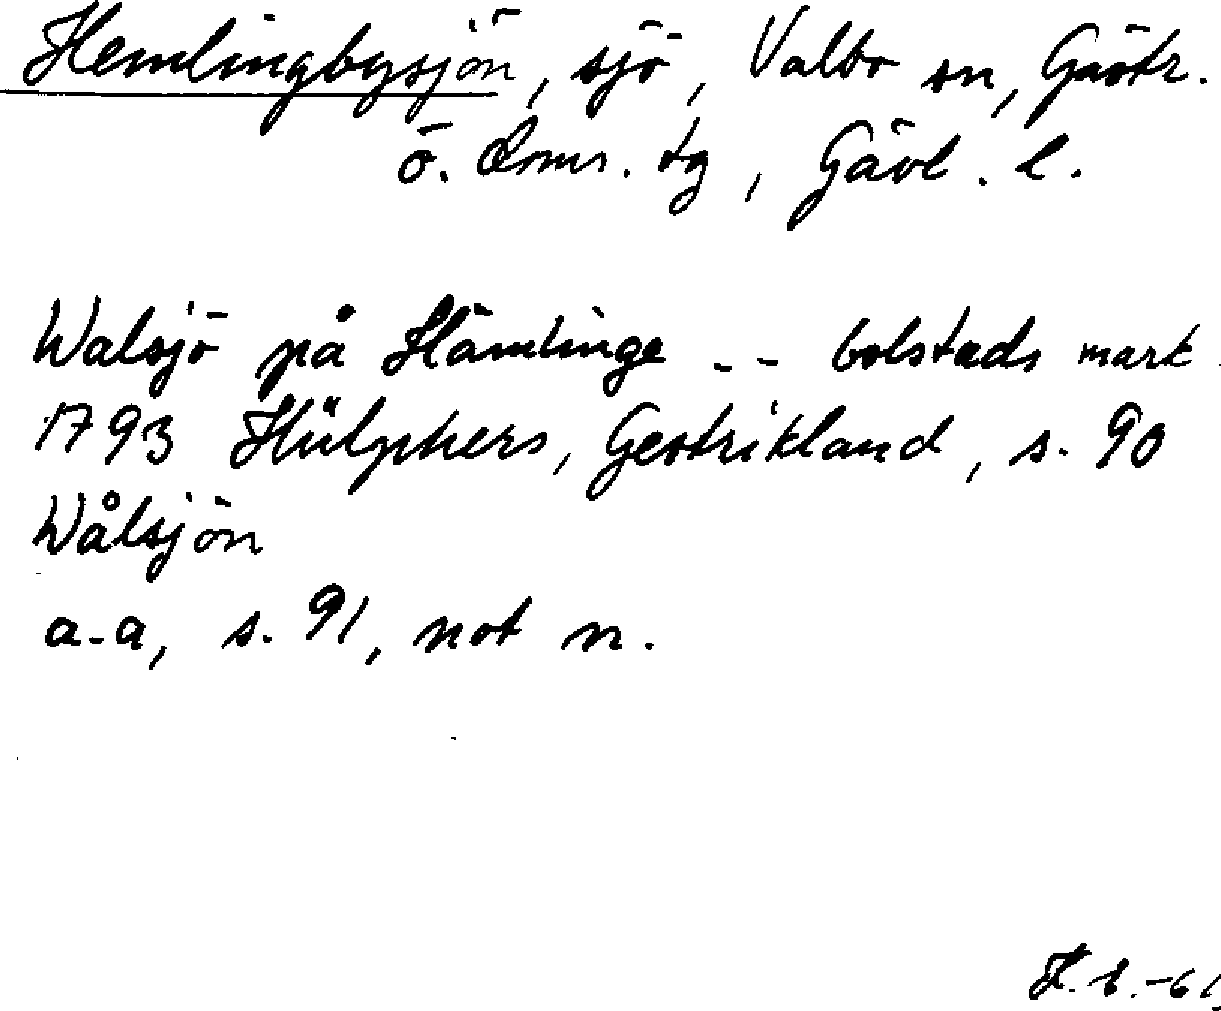 Hemlingbysjön, sjö, Valbo sn, Gästr.
ö. doms. tg, Gävl. l.
Walsjö på Hämlinge -- bolstads mark.
1793 Hülphers, Gestrikland, s. 90
Wålsjön
a.a, s. 91, not n.
-61